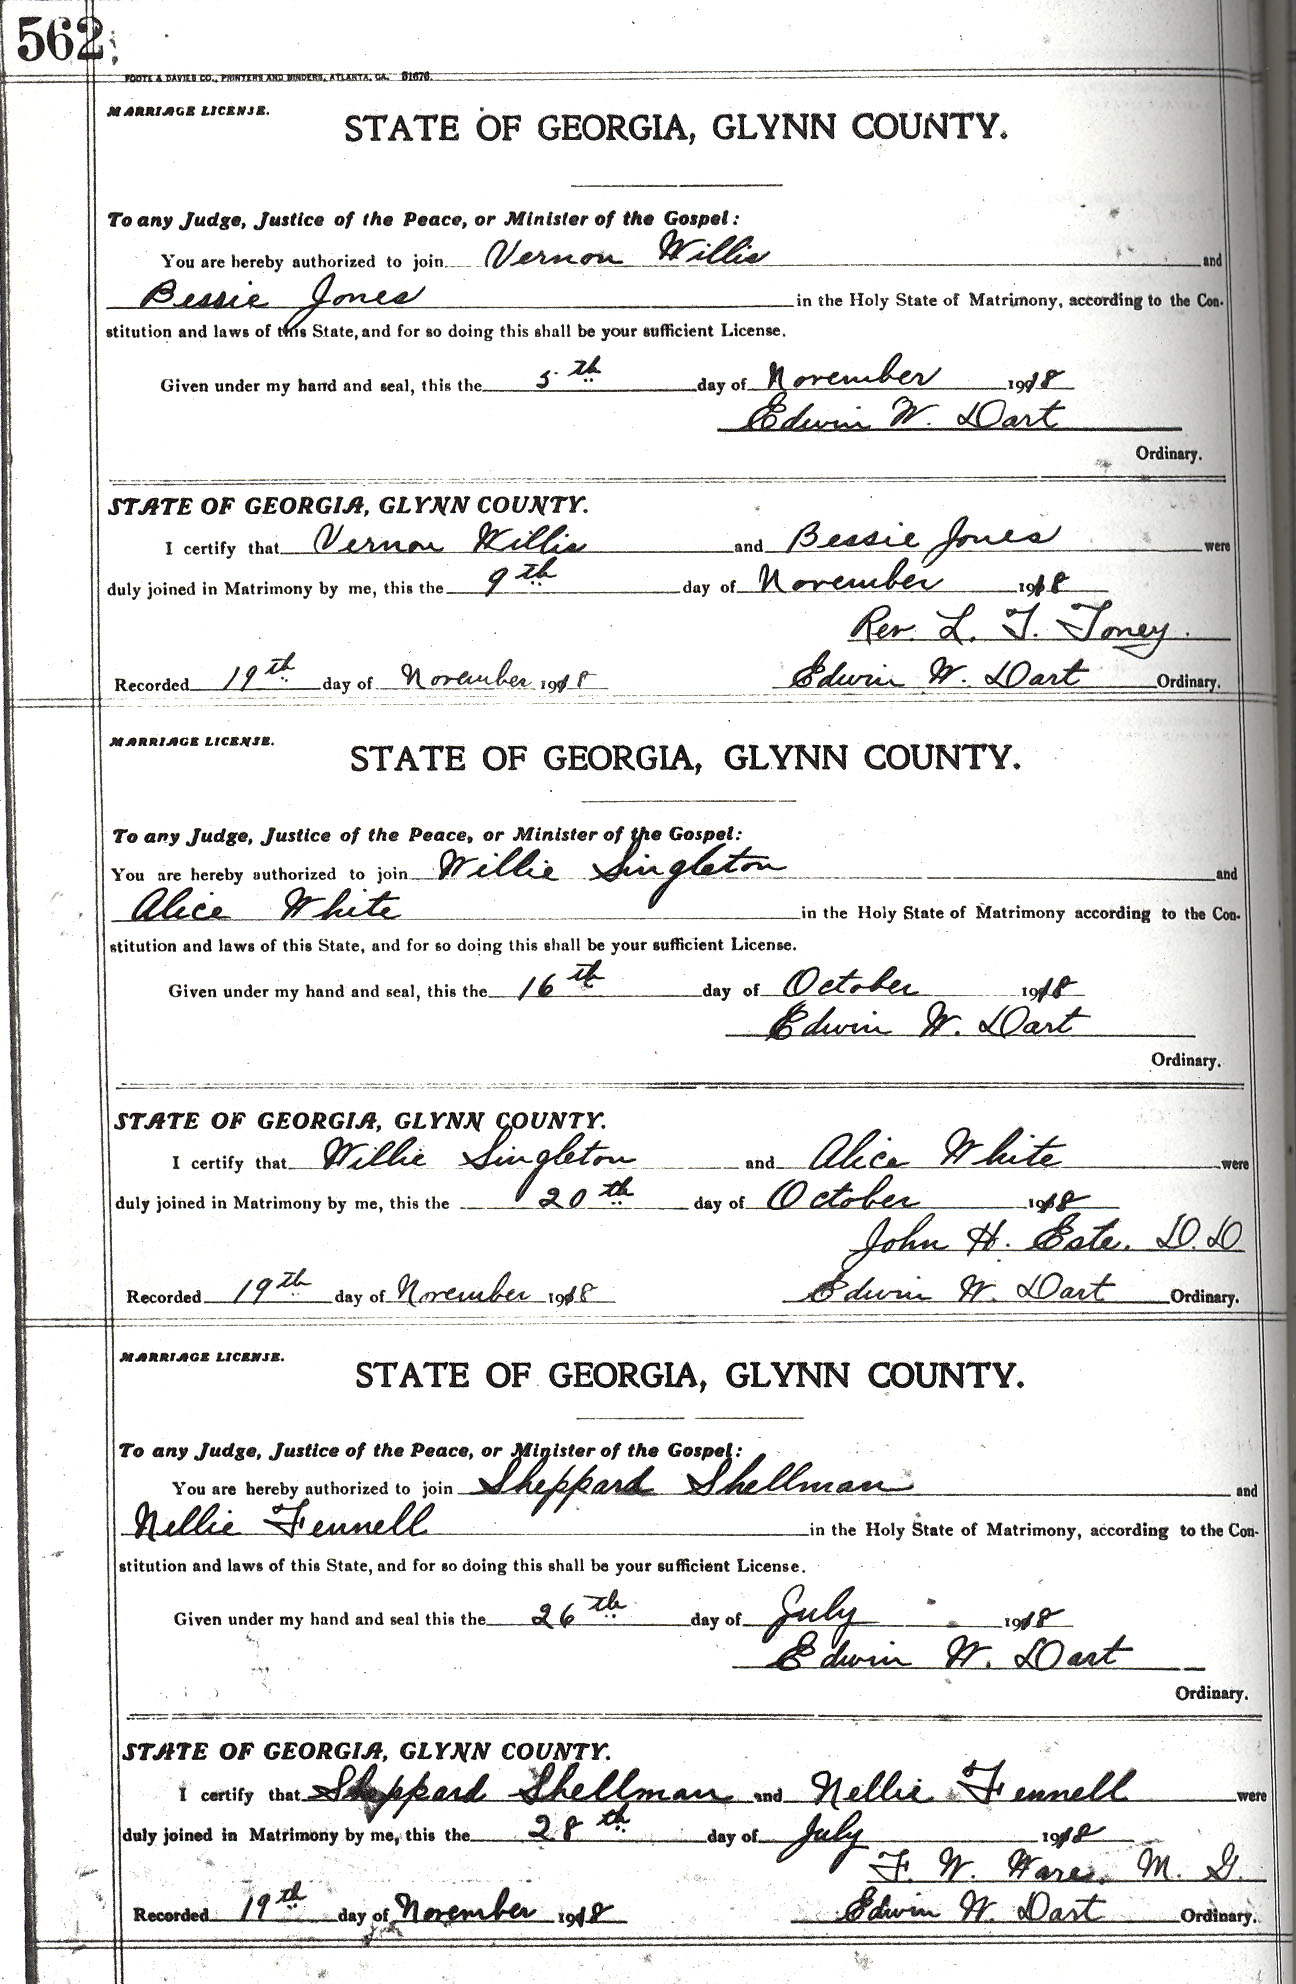 562
FOOTE & DAVIES CO., PRINTERS AND BINDERS, ATLANTA, GA. 81676.
MARRIAGE LICENSE.
STATE OF GEORGIA, GLYNN COUNTY.
To any Judge, Justice of the Peace, or Minister of the Gospel:
You are hereby authorized to join Vernon Willis and
Bessie Jones in the Holy State of Matrimony, according to the Con-
stitution and laws of this State, and for so doing this shall be your sufficient License.
Given under my hand and seal, this the 5th day of November 1918
Edwin W. Dart
Ordinary.
STATE OF GEORGIA, GLYNN COUNTY.
I certify that Vernon Willis and Bessie Jones were
duly joined in Matrimony by me, this the 9th day of November 1918
Rev. L. T. Toney.
Recorded 19th day of November 1918 Edwin W. Dart Ordinary.
MARRIAGE LICENSE.
STATE OF GEORGIA, GLYNN COUNTY.
To any Judge, Justice of the Peace, or Minister of the Gospel:
You are hereby authorized to join Willie Singleton and
Alice White in the Holy State of Matrimony according to the Con-
stitution and laws of this State, and for so doing this shall be your sufficient License.
Given under my hand and seal, this the 16th day of October 1918
Edwin W. Dart
Ordinary.
STATE OF GEORGIA, GLYNN COUNTY.
I certify that Willie Singleton and Alice White were
duly joined in Matrimony by me, this the 20th day of October 1918
John H. Este. D.D
Recorded 19th day of November 1918 Edwin W. Dart Ordinary.
MARRIAGE LICENSE.
STATE OF GEORGIA, GLYNN COUNTY.
To any Judge, Justice of the Peace, or Minister of the Gospel:
You are hereby authorized to join Sheppard Shellman and
Nellie Fennell in the Holy State of Matrimony, according to the Con-
stitution and laws of this State, and for so doing this shall be your sufficient License.
Given under my hand and seal this the 26th day of July 1918
Edwin W. Dart
Ordinary.
STATE OF GEORGIA, GLYNN COUNTY.
I certify that Sheppard Shellman and Nellie Fennell were
duly joined in Matrimony by me, this the 28th day of July 1918
F. W. Ware, M. G.
Recorded 19th day of November 1918 Edwin W. Dart Ordinary.